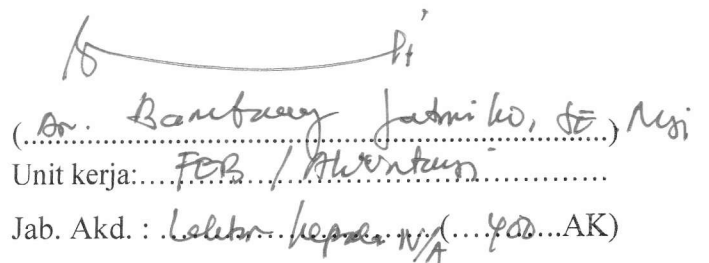 (Dr. Bambang Jatmiko, SE, Msi)
Unit kerja:....FEB / Akuntansi.............
Jab. Akd. : .Lektor kepala IV/A (....400...AK)